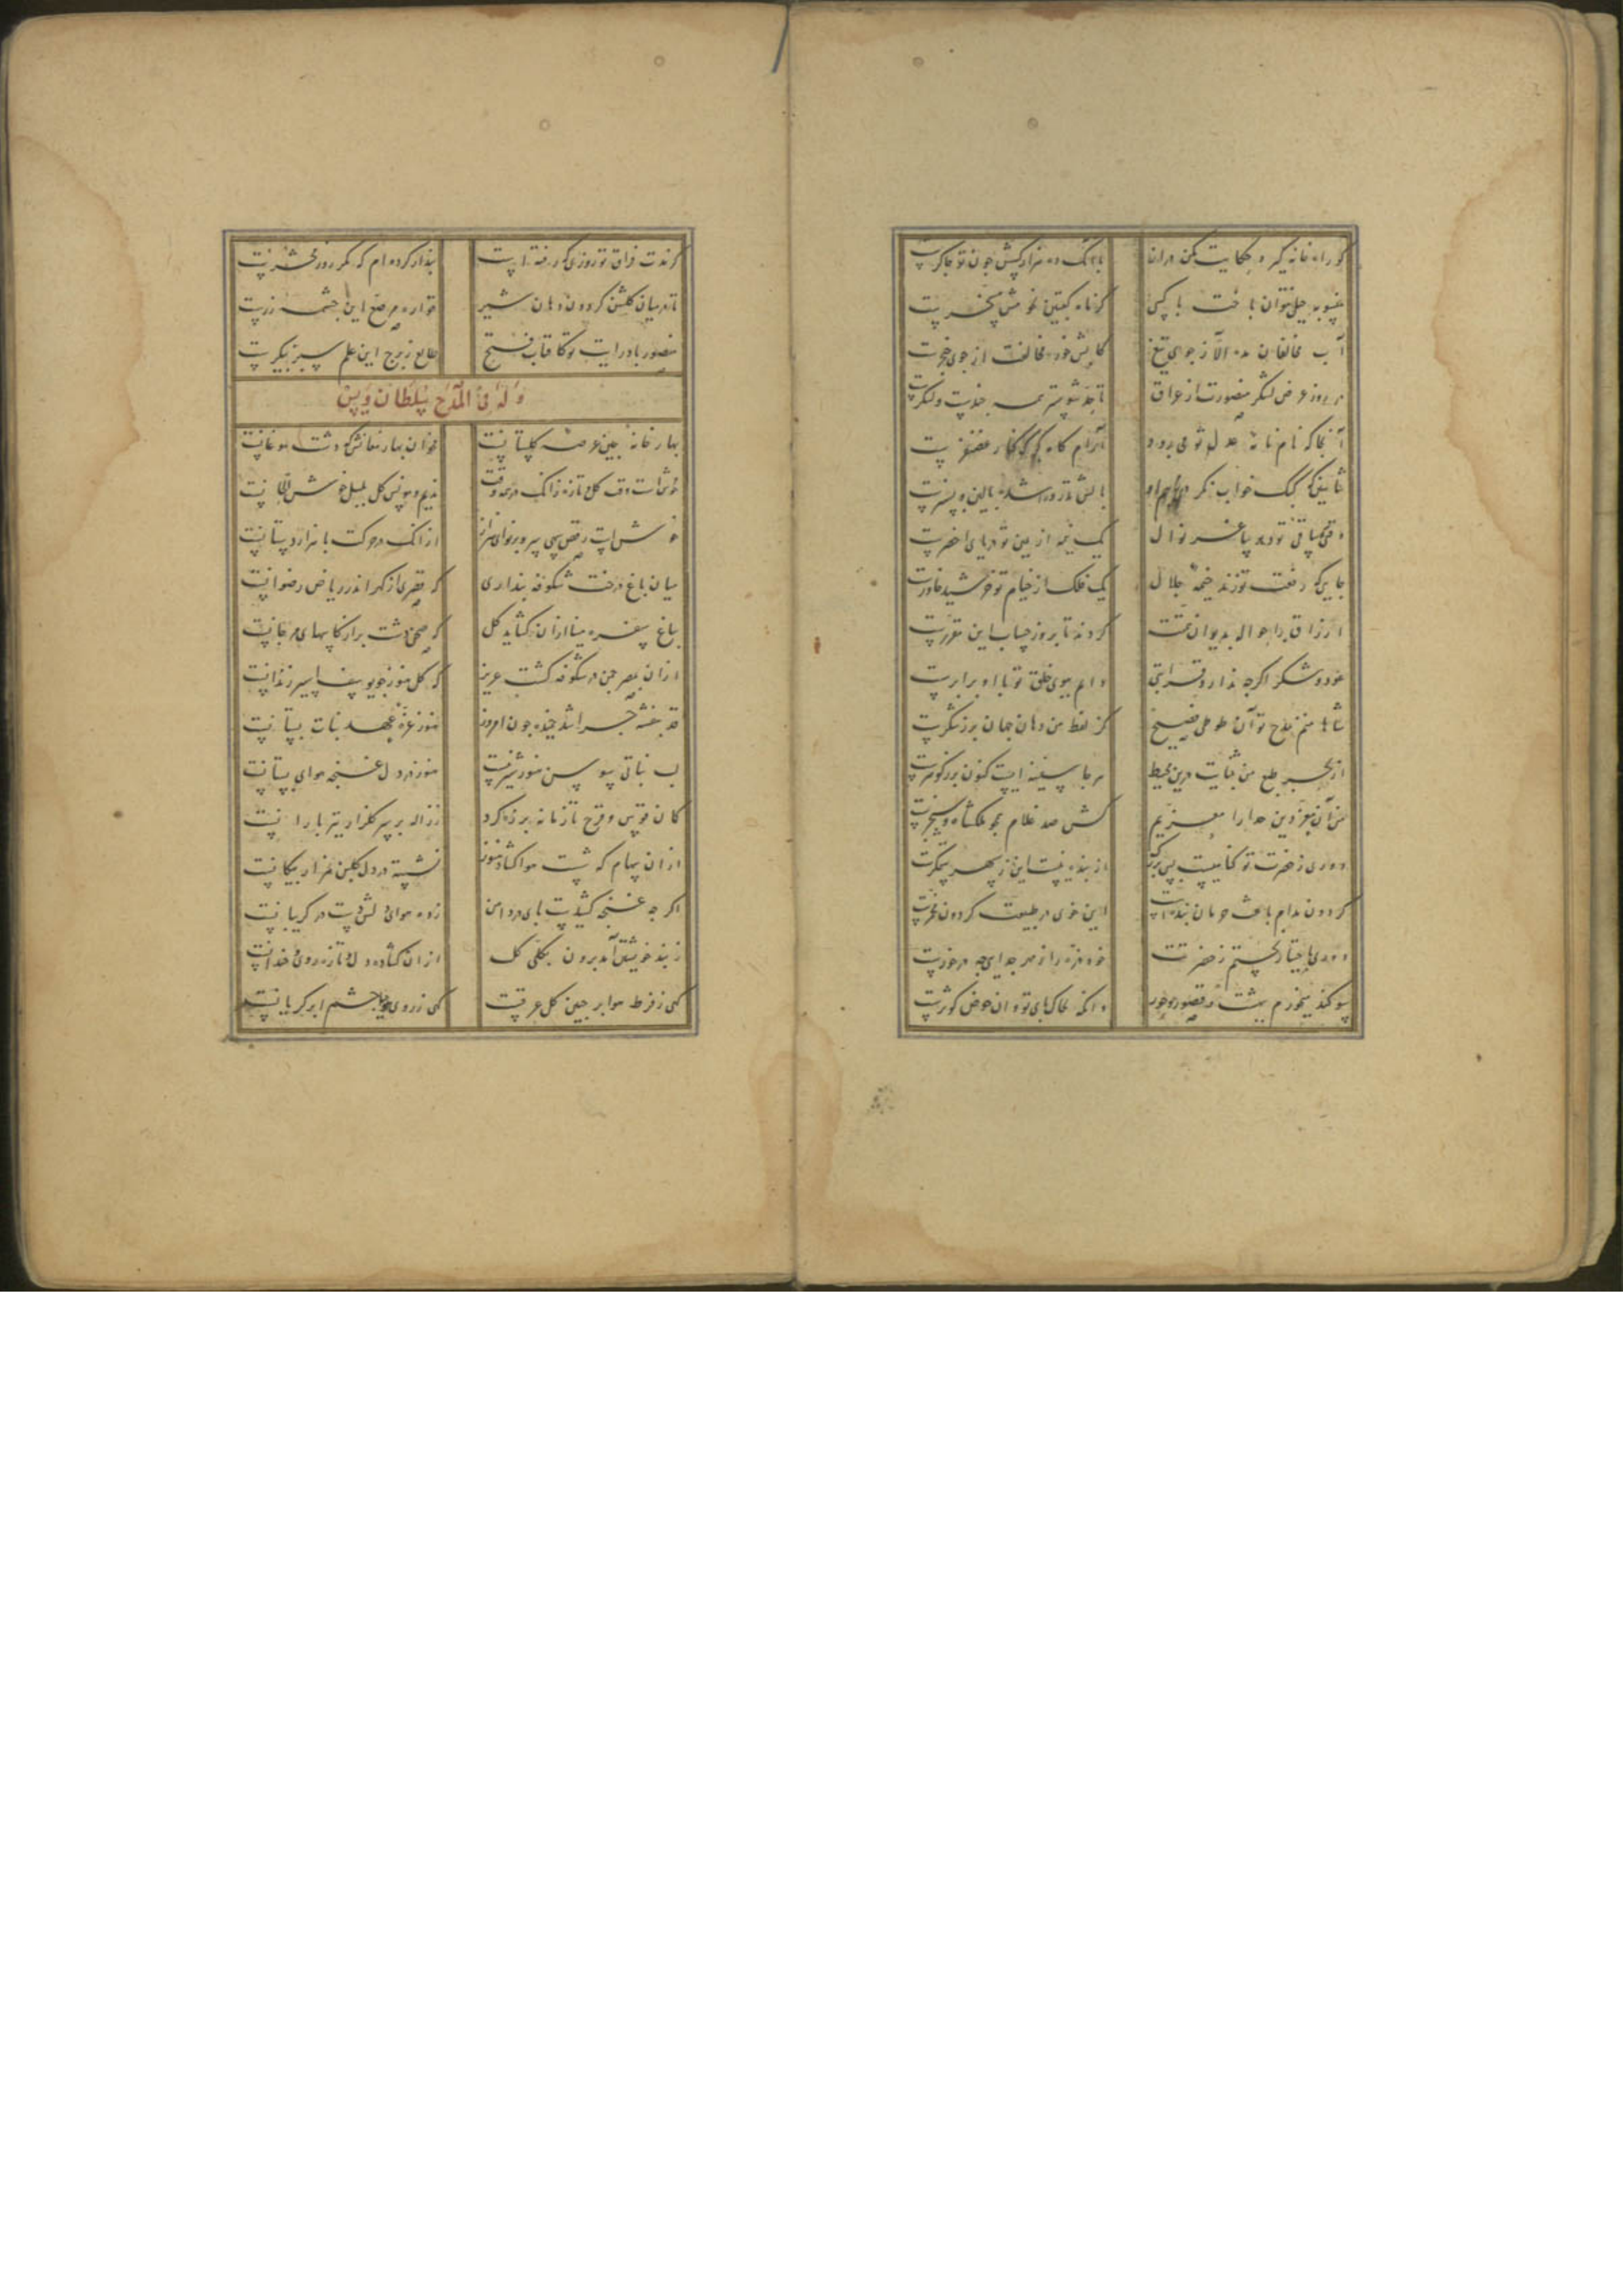 کو راه خانه گیر و حکایت مکن دراز
با آنک ده هزار کسش چون تو چاکرست
منصوبه حیل نتوان باخت با کسی
آب مخالفان مده الا ز جوی تیغ
کابش خور مخالفت از جوی خنجرست
در روز عرض لشکر منصورت از عراق
تا حد شوشتر همه جندست و لشکرست
آنجا که نام نامه عدل تو می‌رود
آرام گاه گور کنار غضنفرست
بالش تذرو را شده بالین و بسترست
یک نیمه از یمین تو دریای اخضرست
جایی که رفعت تو زند خیمه جلال
یک فلکه از خیام تو خورشید خاورست
ارزاق را حواله بدیوان همتت
کردند تا بروز حساب این مقررست
عود و شکر اگرچه ندارد قرابتی
دایم ببوی خلق تو با او برابرست
شاها منم بمدح تو آن طوطی فصیح
کز لفظ من دهان جهان پر ز شکرست
از بحر طبع من چو ثنایت درین محیط
هرجا سفینه ایست کنون پر ز گوهرست
کش صد غلام همچو ملکشاه و سنجرست
دوری ز حضرت تو گناهیست بس بزرگ
از بنده نیست این ز سپهر ستمگرست
گردون مدام باعث حرمان بنده است
این خوی در طبیعت گردون مخمرست
دوری باختیار نجستم ز حضرتت
خود ذره را ز مهر جدایی چه درخورست
سوگند میخورم ببهشت و قصور و حور
وانکه بخاک پای تو و آن حوض کوثرست
کز مدت فراق تو روزی که رفته است
پندار کرده‌ام که مگر روز محشرست
تا در میان گلشن گردون دهان شیر
فواره مرصع این چشمه زرست
منصور باد رایت تو کافتاب فتح
طالع ز برج این علم سبز پیکرست
وله فی المدح سلطان ویس
بهار خانه چین عرصه گلستانست
مخوان بهار مغانش که دشت موغانست
خوش است وقت گل تازه زانک در همه وقت
ندیم و مونس گل بلبل خوش الحانست
خوش است رقص سهی سرو بر نوای هزار
از آنک در حرکت با هزار دستانست
میان باغ درخت شکوفه پنداری
که قصری از گهر اندر ریاض رضوانست
بباغ سفره مینا از آن کشاید گل
که صحن دشت پر از کاسهای مرجانست
از آن بمصر چمن در شکوفه گشت عزیز
که گل هنوز چو یوسف اسیر زندانست
هنوز غره عهد نبات بستانست
لب نباتی سوسن هنوز شیرینست
هنوز در دل غنچه هوای بستانست
کمان قوس و قزح تا زمانه بر زه کرد
ز ژاله بر سر گلزار تیر بارانست
از آن سهام که شست هوا کشاد هنوز
نشسته در دل گلبن هزار پیکانست
اگرچه غنچه کشیدست پای در دامن
زده هوای دلش دست در گریبانست
ز بند خویش برآمد برون بکلی گل
از آن کشاده دل و تازه روی و خندانست
گهی ز فرط هوا بر جبین گل عرقست
گهی ز روی حیا چشم ابر گریانست